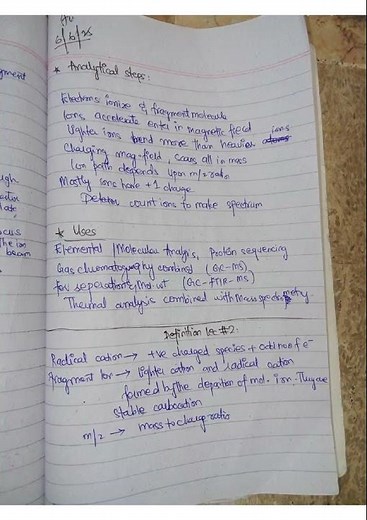 6/6/25
* Analytical steps:
Electrons ionize & fragment molecule
Ions accelerate enter in magnetic field
Lighter ions bend more than heavier ions
Changing mag-field, scans all ions
Ion path depends upon m/z ratio
Mostly ions have +1 charge
Detector count ions to make spectrum
* Uses
Elemental / Molecular Analysis, Protein sequencing
Gas chromatography combined (GC-MS)
for separation (GC-FTIR-MS)
Thermal analysis combined with Mass spectrometry
Definition Lec #2:
Radical cation → +ve charged species + odd no of e⁻
Fragment Ion → lighter cation and radical cation
formed by the of mol. ion. They are
stable carbocation
m/z → mass to charge ratio